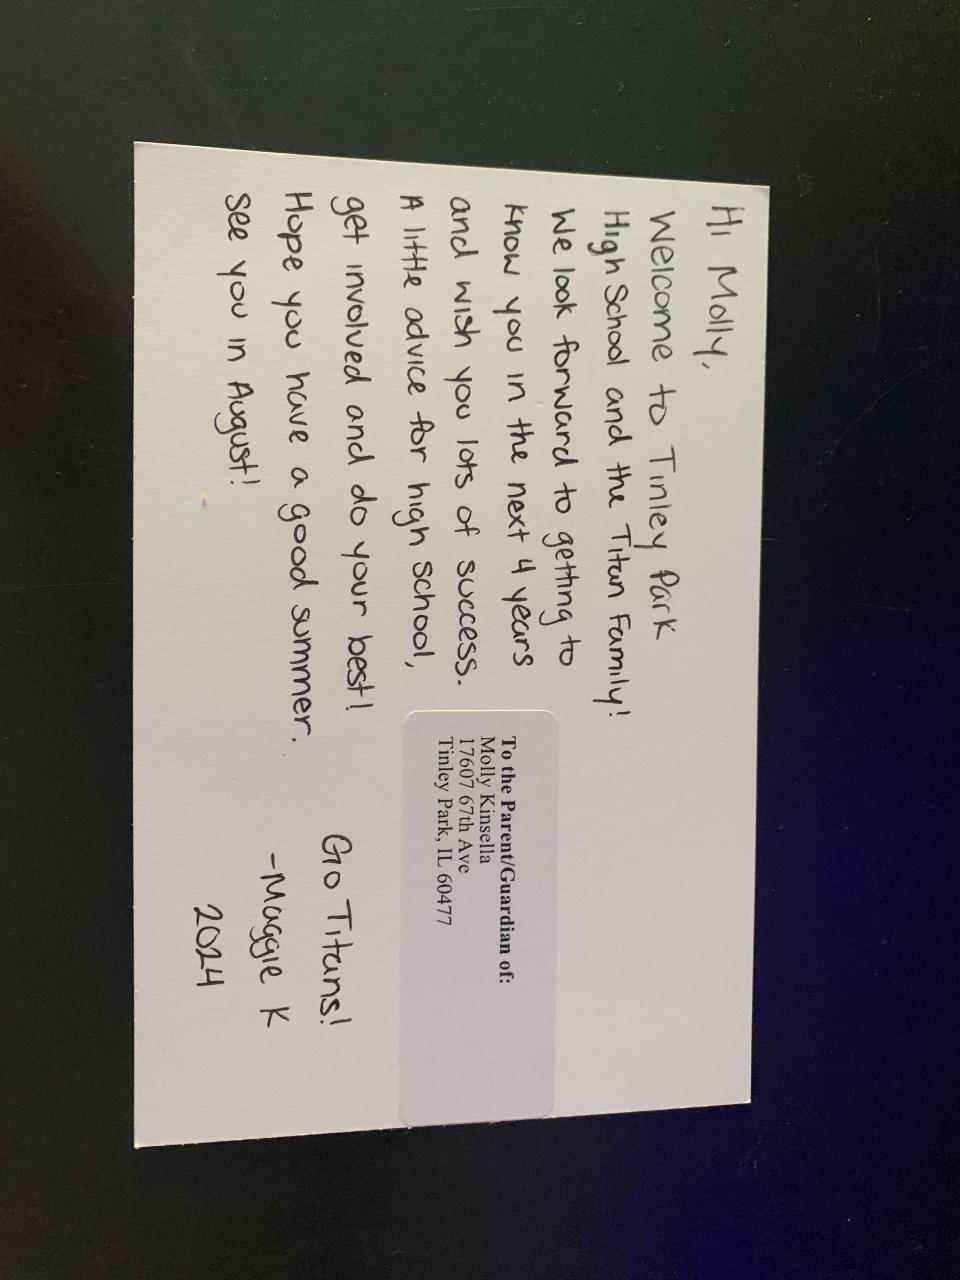 Hi Molly,
Welcome to Tinley Park
High School and the Titan Family!
We look forward to getting to
know you in the next 4 years
and wish you lots of success.
A little advice for high school,
get involved and do your best!
Hope you have a good summer.
see you in August!
To the Parent/Guardian of:
Molly Kinsella
17607 67th Ave
Tinley Park, IL 60477
Go Titans!
-Maggie K
2024